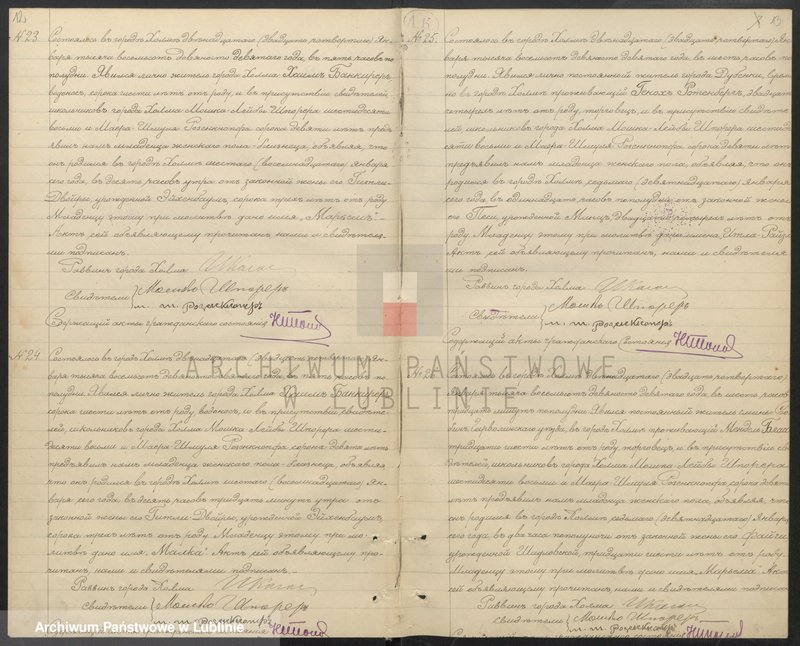 №23
Состоялось въ городѣ Холмѣ двѣнадцатаго (двадцать четвертаго) Ян-
варя тысяча восемьсотъ девяносто девятаго года, въ пять часовъ по
полудни. Явился лично житель города Холма Хаимъ Банкиреръ,
водовозъ, сорока шести лѣтъ отъ роду, и въ присутствіи свидѣтелей,
школьниковъ города Холма Мошка-Лейбы Шпорера шестидесяти
восьми и Маера-Шмуля Розенкнопфа сорока девяти лѣтъ пред-
явилъ намъ младенца женскаго пола - близнеца, объявляя, что
онъ родился въ городѣ Холмѣ шестаго (восемнадцатаго) Января
сего года, въ десять часовъ утра отъ законной жены его Гитли-
Двойры, урожденной сорока трехъ лѣтъ отъ роду.
Младенцу этому при молитвѣ дано имя „Марьемъ“.-
Актъ сей объявляющему прочитанъ, нами и свидѣтеля-
ми подписанъ.
Раввинъ города Холма
Свидѣтели Мошко Шпореръ
м. ш. Розенкнопфъ
Содержащій акты гражданскаго состоянія
№24
Состоялось въ городѣ Холмѣ двѣнадцатаго (двадцать четвертаго) Ян-
варя тысяча восемьсотъ девяносто девятаго года въ пять часовъ по
полудни. Явился лично житель города Холма Хаимъ Банкиреръ
сорока шести лѣтъ отъ роду, водовозъ, и въ присутствіи свидѣте-
лей, школьниковъ города Холма Мошка-Лейбы Шпорера шести-
десяти восьми и Маера-Шмуля Розенкнопфа, сорока девяти лѣтъ
предъявилъ намъ младенца женскаго пола - близнеца, объявляя,
что онъ родился въ городѣ Холмѣ шестаго (восемнадцатаго) Ян-
варя сего года, въ десять часовъ тридцать минутъ утра отъ
законной жены его Гитли Двойры, урожденной
сорока трехъ лѣтъ отъ роду. Младенцу этому при мо-
литвѣ дано имя „Малка“. Актъ сей объявляющему про-
читанъ, нами и свидѣтелями подписанъ.-
Раввинъ города Холма
Свидѣтели Мошко Шпореръ
м. ш. Розенкнопфъ
состоянія
13
№25.
Состоялось въ городѣ Холмѣ двѣнадцатаго (двадцать четвертаго) Ян-
варя тысяча восемьсотъ девяносто девятаго года въ шесть часовъ по
полудни. Явился лично постоянный житель города Дубенки,
въ городѣ Холмѣ проживающій Генохъ Ротенбергъ, двадцати
четырехъ лѣтъ отъ роду, торговецъ, и въ присутствіи свидѣте-
лей, школьниковъ города Холма Мошка-Лейбы Шпорера шестиде-
сяти восьми и Маера Шмуля Розенкнопфа сорока девяти лѣтъ
предъявилъ намъ младенца женскаго пола, объявляя, что онъ
родился въ городѣ Холмѣ, седьмаго (девятнадцатаго) Января
сего года въ одинадцать часовъ пополудни отъ законной жены
его Песи, урожденной Минцъ, двадцати четырехъ лѣтъ отъ
роду. Младенцу этому при молитвѣ дано имя Итта
Актъ сей объявляющему прочитанъ, нами и свидѣтеля-
ми подписанъ.
Раввинъ города Холма
Свидѣтели Мошко Шпореръ
м. ш. Розенкнопфъ
Содержащій акты гражданскаго состоянія
Состоялось въ городѣ Холмѣ двѣнадцатаго (двадцать четвертаго)
Января тысяча восемьсотъ девяносто девятаго года, въ шесть часовъ
тридцать минутъ пополудни. Явился постоянный житель
уѣзда, въ городѣ Холмѣ проживающій Мендель
тридцати шести лѣтъ отъ роду, торговецъ, и въ присутствіи сви-
дѣтелей, школьниковъ города Холма Мошка-Лейбы Шпорера
шестидесяти восьми и Маера Шмуля Розенкнопфа, сорока девяти
лѣтъ предъявилъ намъ младенца женскаго пола, объявляя, что
онъ родился въ городѣ Холмѣ седьмаго (девятнадцатаго) Января
сего года, въ два часа пополуночи отъ законной жены его Файги
урожденной тридцати шести лѣтъ отъ роду.
Младенцу этому при молитвѣ дано имя „Марьемъ“. Актъ
сей объявляющему прочитанъ, нами и свидѣтелями подписанъ
Раввинъ города Холма
Свидѣтели Мошко Шпореръ
м. ш. Розенкнопфъ
состоянія
ARCHIWUM PAŃSTWOWE
W LUBLINIE
Archiwum Państwowe w Lublinie